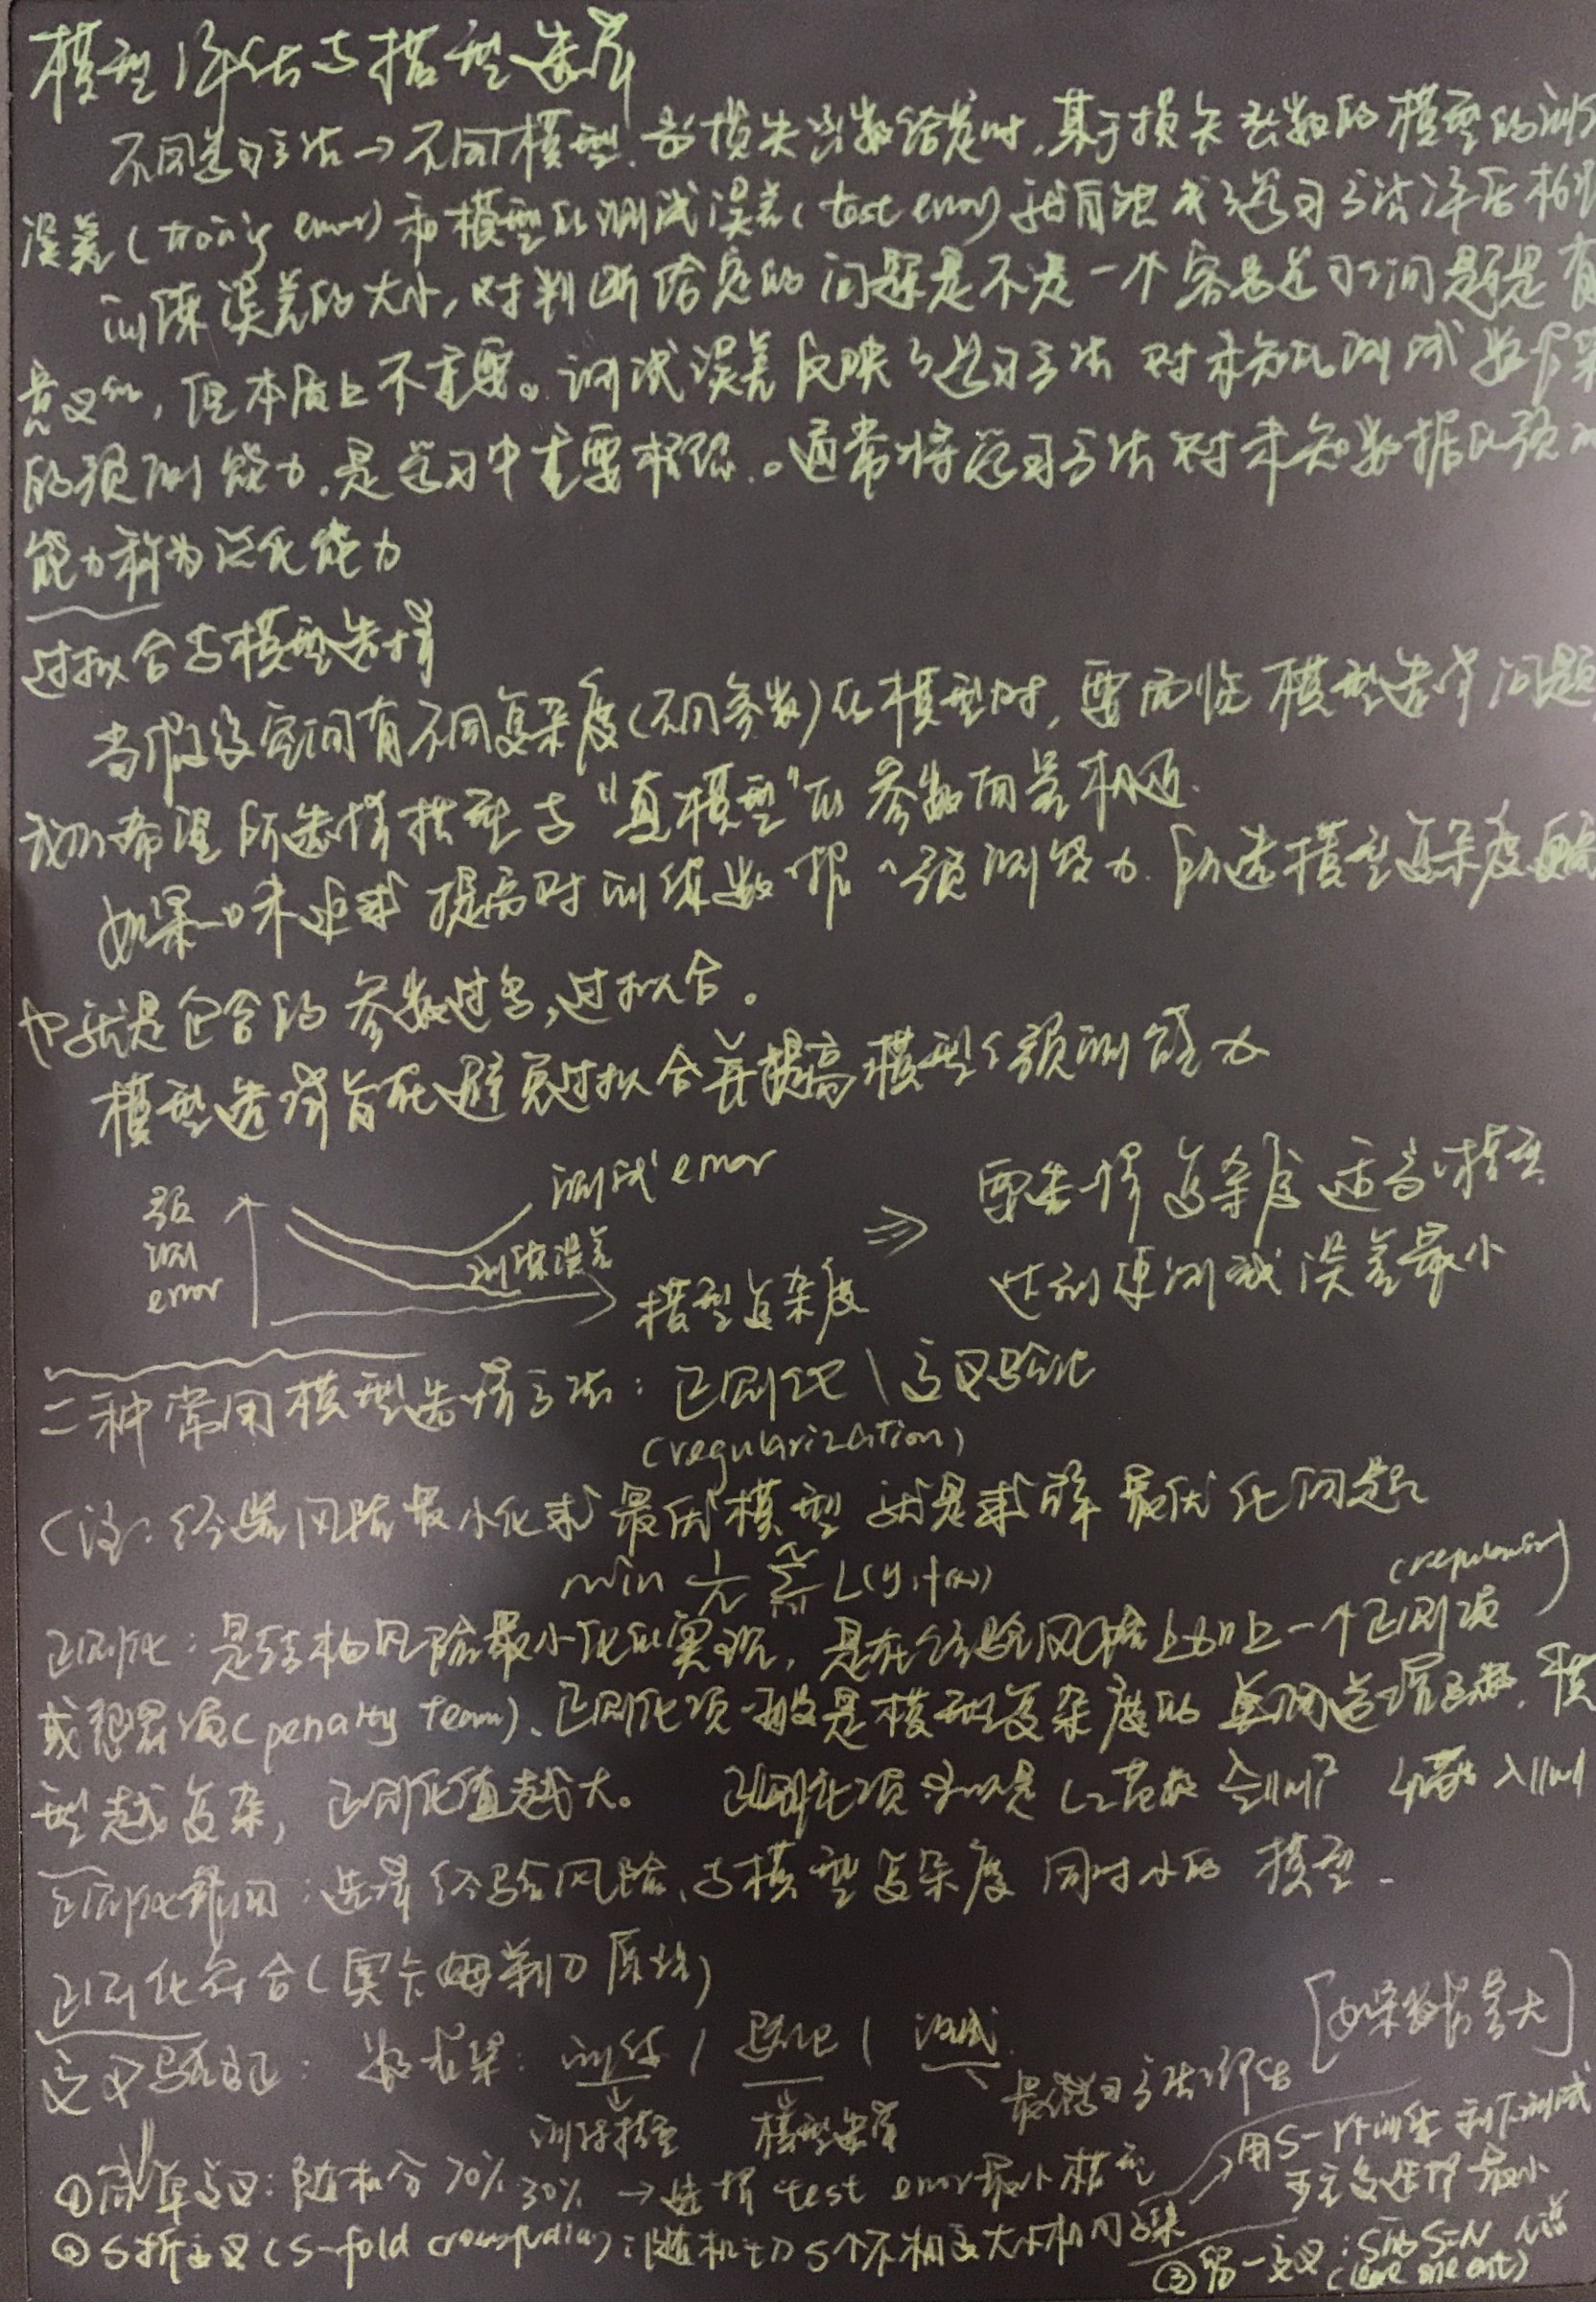 模型评估与模型选择
不同学习方法→不同模型.当损失函数给定时,基于损失函数的模型的训
误差(training error)和模型的测试误差(test error)就自然成了学习方法评估
训练误差的大小,对判断给定的问题是不是一个容易学习的问题是有
意义的,但本质上不重要。测试误差反映了学习方法对未知的测试数据集
的预测能力.是学习中重要概念。通常将学习方法对未知数据的预测
能力称为泛化能力
过拟合与模型选择
当假设空间有不同复杂度(不同参数)的模型时,要面临模型选择问题
我们希望所选择模型与“真模型”的参数向量相近.
如果一味追求提高对训练数据的预测能力.所选模型复杂度更高
也就是包含的参数过多,过拟合。
模型选择旨在避免过拟合并提高模型的预测能力
预测error
测试error
训练误差
模型复杂度
⇒ 要选择复杂度适当的模型
达到使测试误差最小
二种常用模型选择方法:正则化\交叉验证
(regularization)
(注:经验风险最小化求最优模型就是求解最优化问题
min 1/N Σ L(y,f(x))
(regularizer)
正则化:是结构风险最小化的实现,是在经验风险上加上一个正则项
或惩罚项(penalty team).正则化项一般是模型复杂度的单调递增函数.模
型越复杂,正则化值越大。 正则化项可以是L2范数
正则化作用:选择经验风险与模型复杂度同时小的模型.
正则化符合(奥卡姆剃刀原理)
交叉验证: 数据集:训练/验证/测试 [如果数据量大]
训练模型 模型选择 最终学习方法评估
①简单交叉:随机分70% 30% →选择test error最小模型
②S折交叉(S-fold cross):随机切S个不相交大小相同子集
用S-1个训练 剩下测试
可重复选择 最小
③留一交叉:S=N
(leave one out)